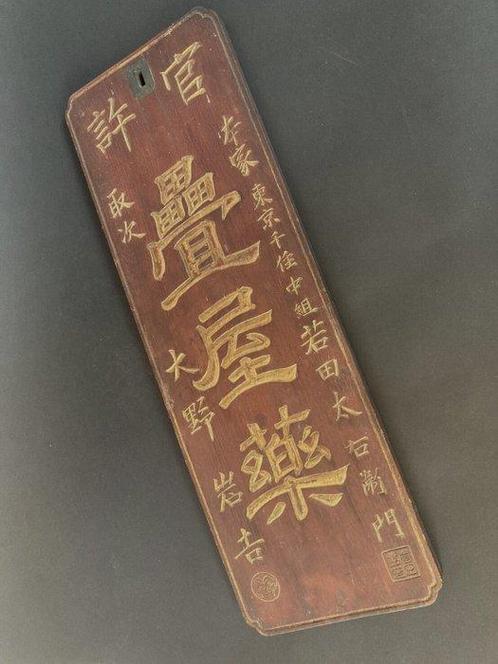 官許
本家 東京千住中組 若田太右衛門
疊屋藥
取次 大野岩吉